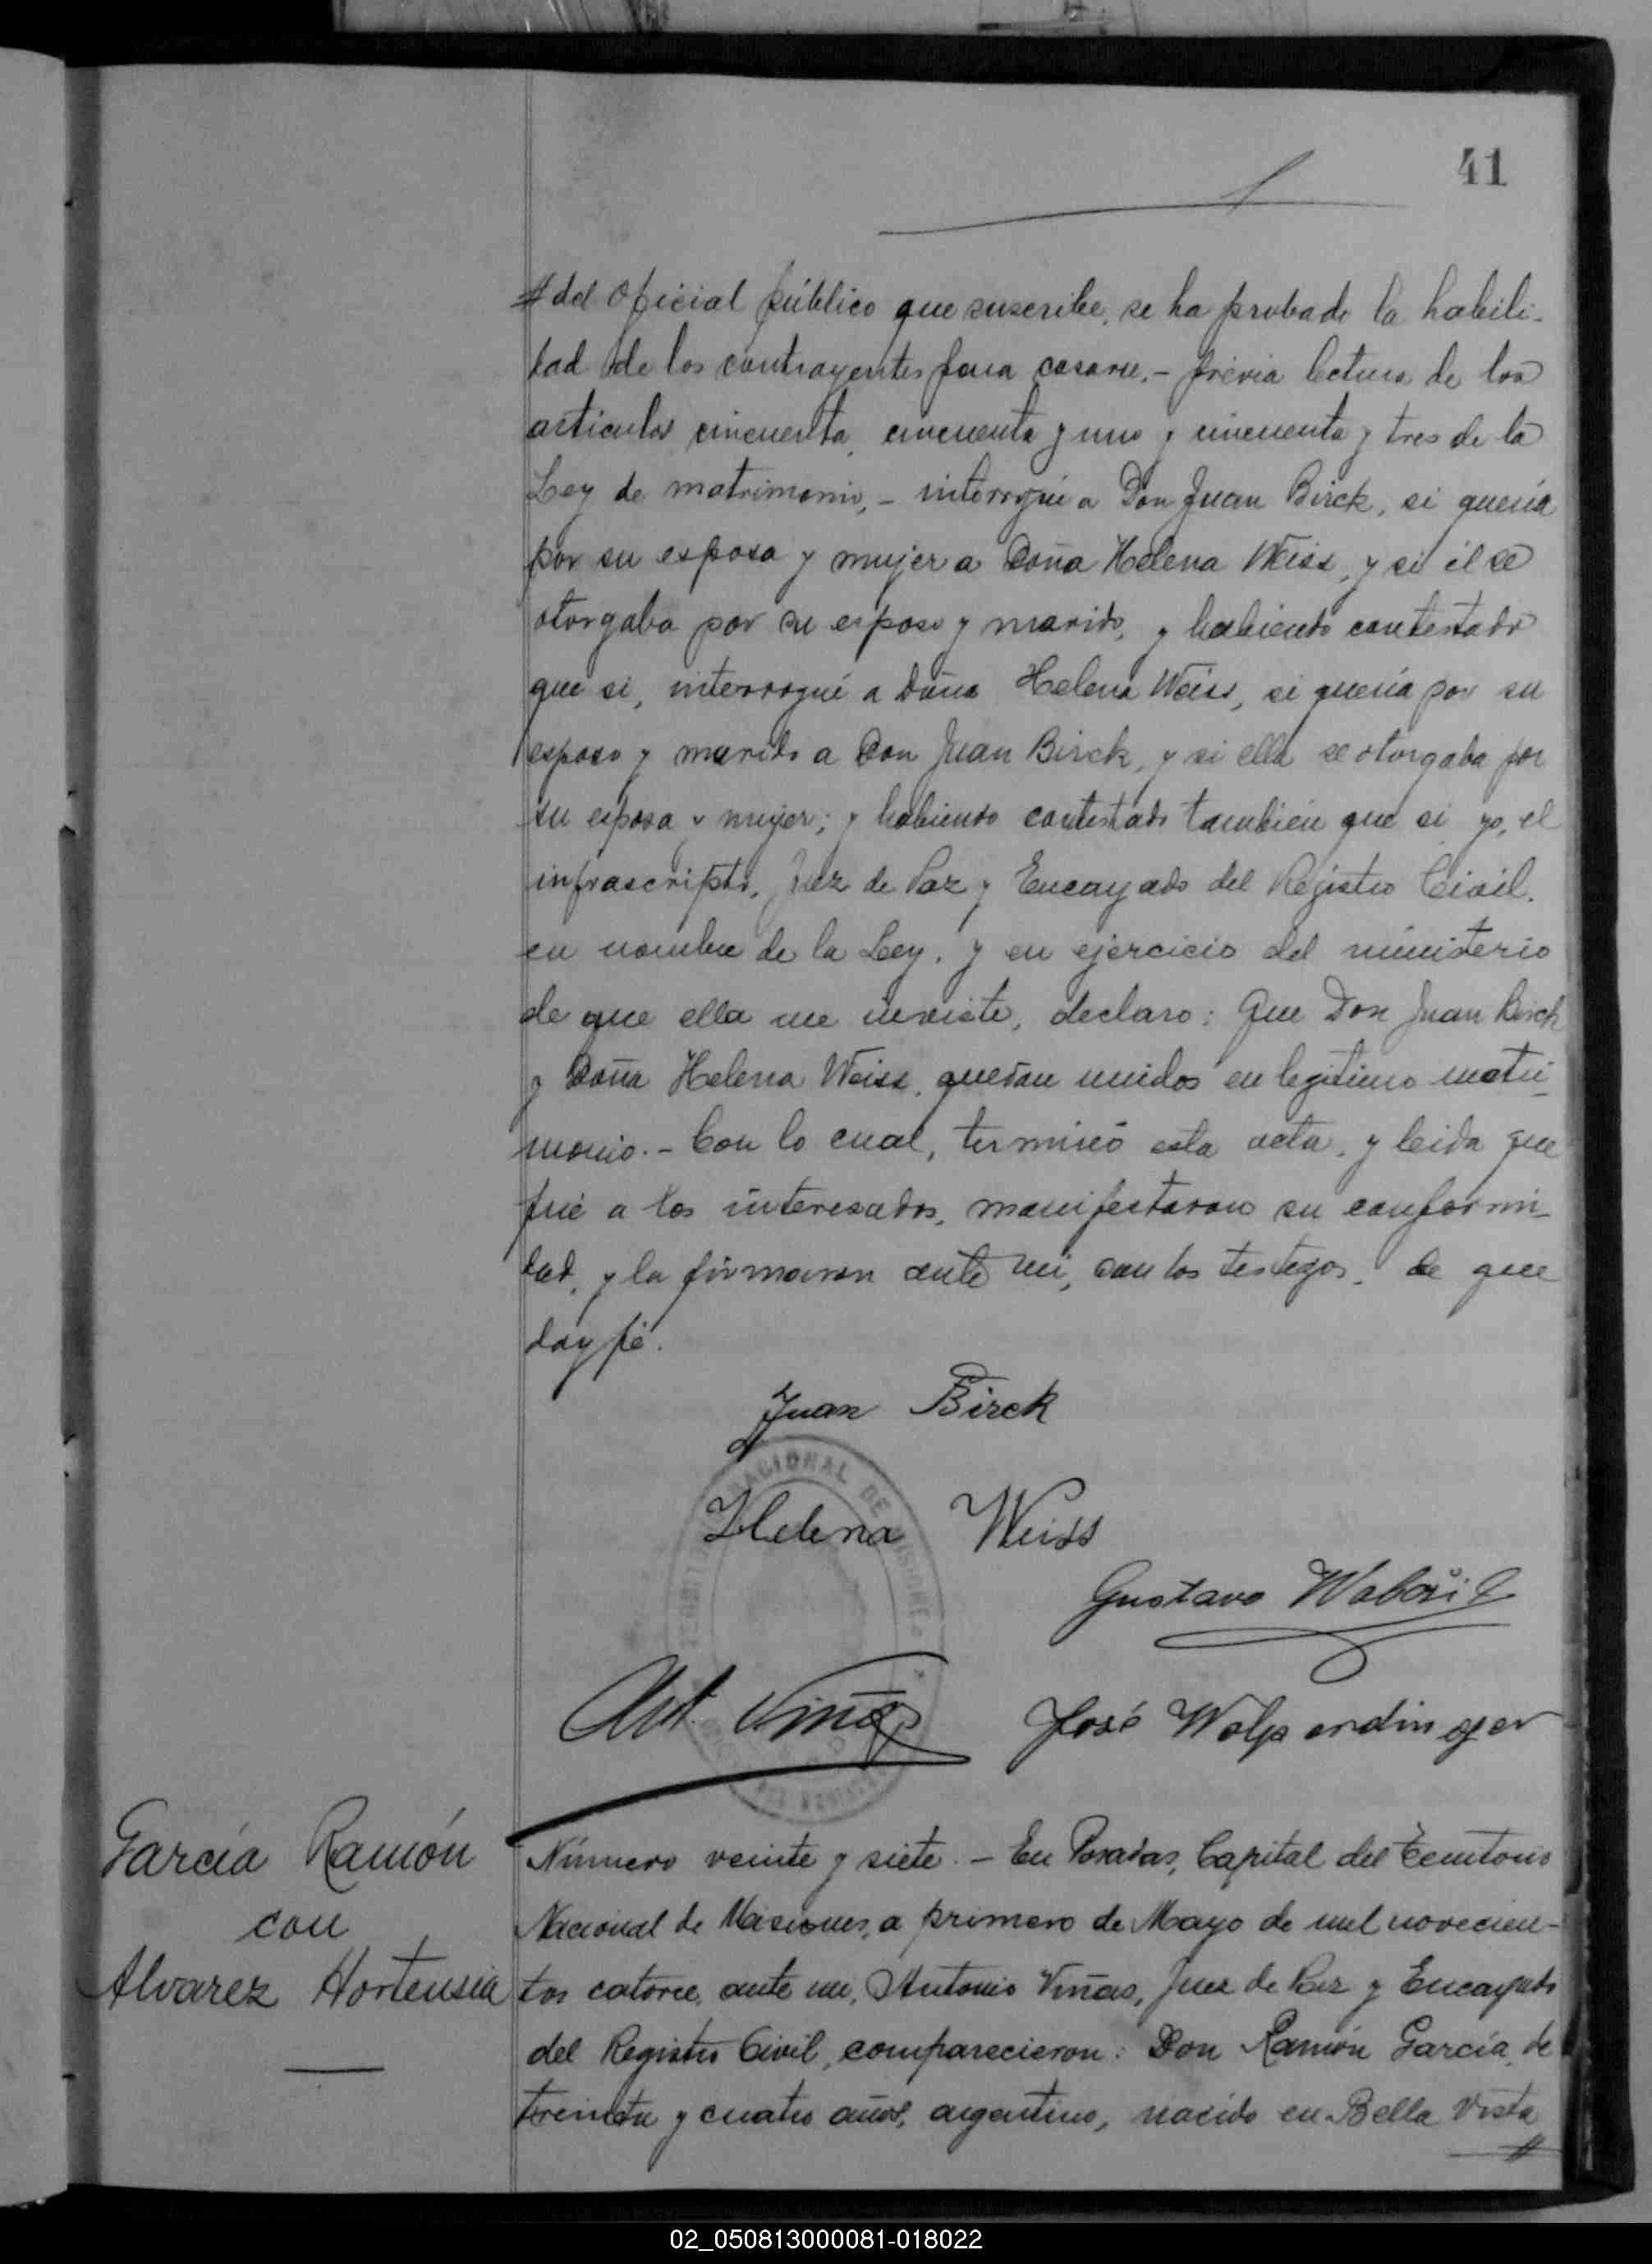 41
# del Oficial público que suscribe, se ha probado la habili-
dad de los contrayentes para casarse.- previa lectura de los
artículos cincuenta, cincuenta y uno y cincuenta y tres de la
Ley de matrimonio,- interrogué a Don Juan Birck, si quería
por su esposa y mujer a Doña Helena Weiss, y si él se
otorgaba por su esposo y marido, y habiendo contestado
que si, interrogué a Doña Helena Weiss, si quería por su
esposo y marido a Don Juan Birck, y si ella se otorgaba por
su esposa y mujer; y habiendo contestado también que si yo, el
infrascripto, Juez de Paz y Encargado del Registro Civil.
en nombre de la Ley, y en ejercicio del ministerio
de que ella me inviste, declaro: Que Don Juan Birck
y Doña Helena Weiss, quedan unidos en legítimo matri-
monio.- Con lo cual, terminó esta acta, y leida que
fué a los interesados, manifestaron su conformi-
dad, y la firmaron ante mi, con los testigos, de que
doy fé.
Juan Birck
NACIONAL DE MISIONES
Helena Weiss
Gustavo
Ant. Viñas José Wolpendinger
García Ramón
con
Alvarez Hortensia
Número veinte y siete.- En Posadas, Capital del Territorio
Nacional de Misiones, a primero de Mayo de mil novecien-
tos catorce, ante mi, Antonio Viñas, Juez de Paz y Encargado
del Registro Civil, comparecieron: Don Ramón García, de
treinta y cuatro años, argentino, nacido en Bella Vista
#
02_050813000081-018022